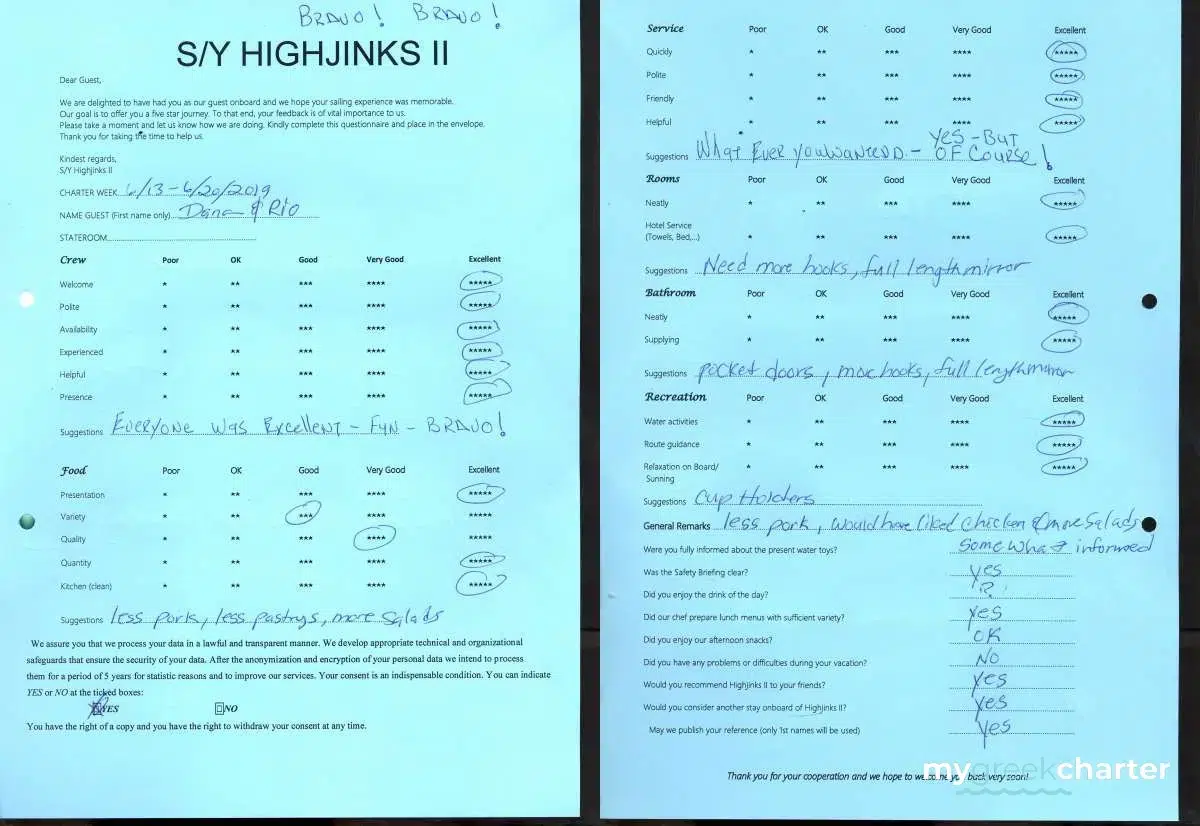 BRAVO! BRAVO!
S/Y HIGHJINKS II
Dear Guest,
We are delighted to have had you as our guest onboard and we hope your sailing experience was memorable.
Our goal is to offer you a five star journey. To that end, your feedback is of vital importance to us.
Please take a moment and let us know how we are doing. Kindly complete this questionnaire and place in the envelope.
Thank you for taking the time to help us.
Kindest regards,
S/Y Highjinks II
CHARTER WEEK 6/13-6/20/2019
NAME GUEST (First name only) Dana & Rio
STATEROOM
Crew Poor OK Good Very Good Excellent
Welcome * ** *** **** *****
Polite * ** *** **** *****
Availability * ** *** **** *****
Experienced * ** *** **** *****
Helpful * ** *** **** *****
Presence * ** *** **** *****
Suggestions EVERYONE WAS EXCELLENT - FUN - BRAVO!
Food Poor OK Good Very Good Excellent
Presentation * ** *** **** *****
Variety * ** *** **** *****
Quality * ** *** **** *****
Quantity * ** *** **** *****
Kitchen (clean) * ** *** **** *****
Suggestions less pork, less pastrys, more salads
We assure you that we process your data in a lawful and transparent manner. We develop appropriate technical and organizational
safeguards that ensure the security of your data. After the anonymization and encryption of your personal data we intend to process
them for a period of 5 years for statistic reasons and to improve our services. Your consent is an indispensable condition. You can indicate
YES or NO at the ticked boxes:
YES NO
You have the right of a copy and you have the right to withdraw your consent at any time.
Service Poor OK Good Very Good Excellent
Quickly * ** *** **** *****
Polite * ** *** **** *****
Friendly * ** *** **** *****
Helpful * ** *** **** *****
YES - BUT
Suggestions WHAT EVER YOU WANTED - OF COURSE!
Rooms Poor OK Good Very Good Excellent
Neatly * ** *** **** *****
Hotel Service
(Towels, Bed,...) * ** *** **** *****
Suggestions Need more hooks, full length mirror
Bathroom Poor OK Good Very Good Excellent
Neatly * ** *** **** *****
Supplying * ** *** **** *****
Suggestions pocket doors, more hooks, full length mirror
Recreation Poor OK Good Very Good Excellent
Water activities * ** *** **** *****
Route guidance * ** *** **** *****
Relaxation on Board/
Sunning * ** *** **** *****
Suggestions Cup Holders
General Remarks less pork, would have liked chicken & more salads
Were you fully informed about the present water toys? Somewhat informed
Was the Safety Briefing clear? yes
Did you enjoy the drink of the day? ?
Did our chef prepare lunch menus with sufficient variety? yes
Did you enjoy our afternoon snacks? OK
Did you have any problems or difficulties during your vacation? NO
Would you recommend Highjinks II to your friends? yes
Would you consider another stay onboard of Highjinks II? yes
May we publish your reference (only 1st names will be used) yes
mygreekcharter
Thank you for your cooperation and we hope to welcome you back very soon!